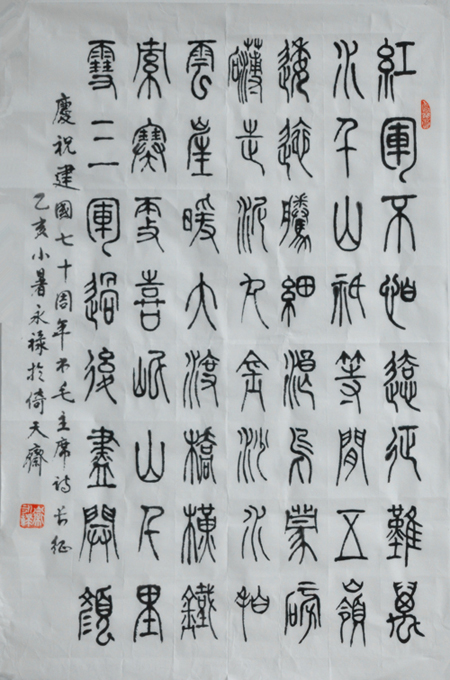 紅軍不怕遠征難萬
水千山祇等閒五嶺
逶迤騰細浪烏蒙磅
礴走泥丸金沙水拍
雲崖暖大渡橋橫鐵
索寒更喜岷山千里
雪三軍過後盡開顏
慶祝建國七十周年书毛主席詩長征
乙亥小暑永祿於倚天齋